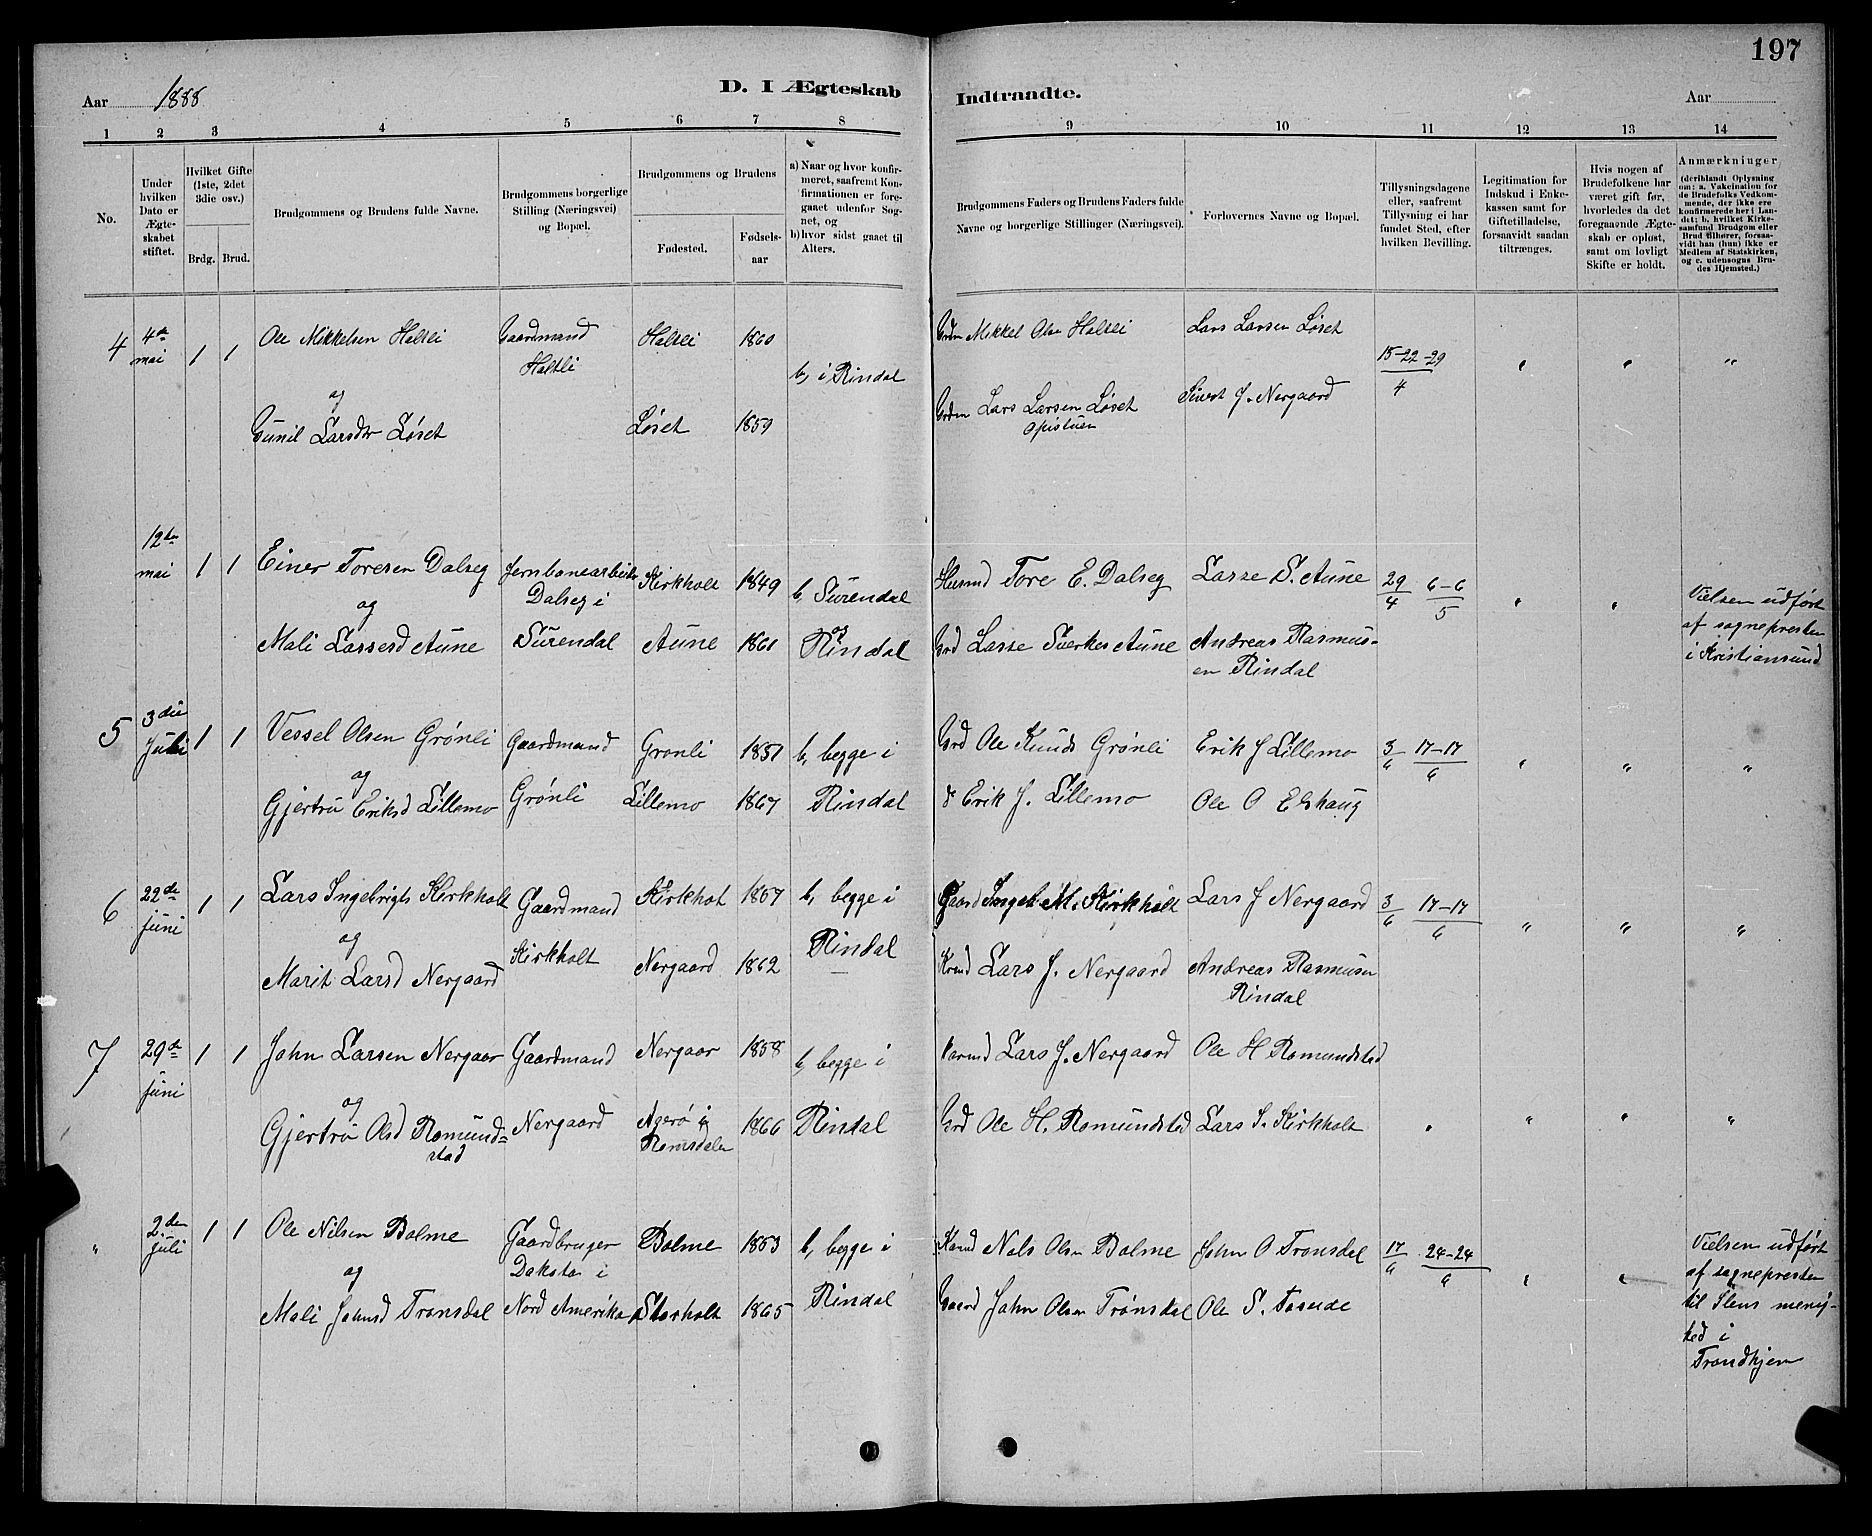 197
Aar 1888
D. I Ægteskab Indtraadte.
Aar
1 2 3 4 5 6 7 8 9 10 11 12 13 14
No.
Under hvilken Dato er Ægteskabet stiftet.
Hvilket Gifte (1ste, 2det 3die osv.)
Brdg. Brud.
Brudgommens og Brudens fulde Navne.
Brudgommens borgerlige Stilling (Næringsvei) og Bopæl.
Brudgommens og Brudens
Fødested.
Fødselsaar
a) Naar og hvor konfirmeret, saafremt Konfirmationen er foregaaet udenfor Sognet, og
b) hvor sidst gaaet til Alters.
Brudgommens Faders og Brudens Faders fulde Navne og borgerlige Stillinger (Næringsvei).
Forlovernes Navne og Bopæl.
Tillysningsdagene eller, saafremt Tillysning ei har fundet Sted, efter hvilken Bevilling.
Legitimation for Indskud i Enkekassen samt for Giftetilladelse, forsaavidt saadan tiltrænges.
Hvis nogen af Brudefolkene har været gift før, hvorledes da det foregaaende Ægteskab er opløst, samt om lovligt Skifte er holdt.
Anmærkninger (deriblandt Oplysning om: a. Vakcination for de Brudefolks Vedkommende, der ikke ere konfirmerede her i Landet; b. hvilket Kirkesamfund Brudgom eller Brud tilhører, forsaavidt han (hun) ikke er Medlem af Statskirken, og c. udensogns Brudes Hjemsted.)
4 4de mai 1 1 Ole Mikkelsen Haltli Gaardmand Haltli Haltli 1860 b, i Rindal Grdm Mikkel Olsn Haltli Lars Larsen Løset 15-22-29/4 " " "
og
Gunil Larsdtr Løset Løset 1859 Grdm Lars Larsen Løset opistuen Sivert J. Nergaard
12te mai 1 1 Einer Toresen Dalseg Jernbanearbeider Dalseg i Surendal Kirkholt 1849 b, Surendal og Rindal Husmd Tore E. Dalseg Lasse S. Aune 29/4 6-6/5 " " Vielsen udført af sognepresten i Kristiansund
og
Mali Lassesd Aune Aune 1861 Grd Lasse Sverkes Aune Andreas Rasmusen Rindal
5 3die Juli 1 1 Vessel Olsen Grønli Gaardmand Grønli Grønli 1851 b, begge i Rindal Grd Ole Knuds Grønli Erik J Lillemo 3/6 17-17/6 " " "
og
Gjertru Eriksd Lillemo Lillemo 1867 Erik J. Lillemo Ole O Elshaug
6 22de juni 1 1 Lars Ingebrigts Kirkholt Gaardmand Kirkholt Kirkhot 1857 b, begge i Rindal Gaard Ingeb M. Kirkholt Lars J Nergaard 3/6 17-17/6 " " "
og
Marit Larsd Nergaard Nergaard 1862 Kaard Lars J. Nergaard Andreas Rasmusen Rindal
7 29de juni 1 1 John Larsen Nergaar Gaardmand Nergaard Nergaar 1858 b, begge i Rindal Lars J. Nergaard Ole H Romundstad " " " "
og
Gjertru Olsd Romundstad Agerø i Romsdalen 1866 Grd Ole H. Romundstad Lars I. Kirkholt
" 2den Juli 1 1 Ole Nilsen Bolme Gaardbruger Dakota i Nord Amerika Bolme 1853 b, begge i Rindal Nils Olsn Bolme John O Tronsdal 17/6 24-24/6 " " Vielsen udført af sognepresten til Ilens menighed i Trondhjem
og
Mali Johnsd Tronsdal Storholt 1865 Gaard John Olsn Trønsdal Ole S.